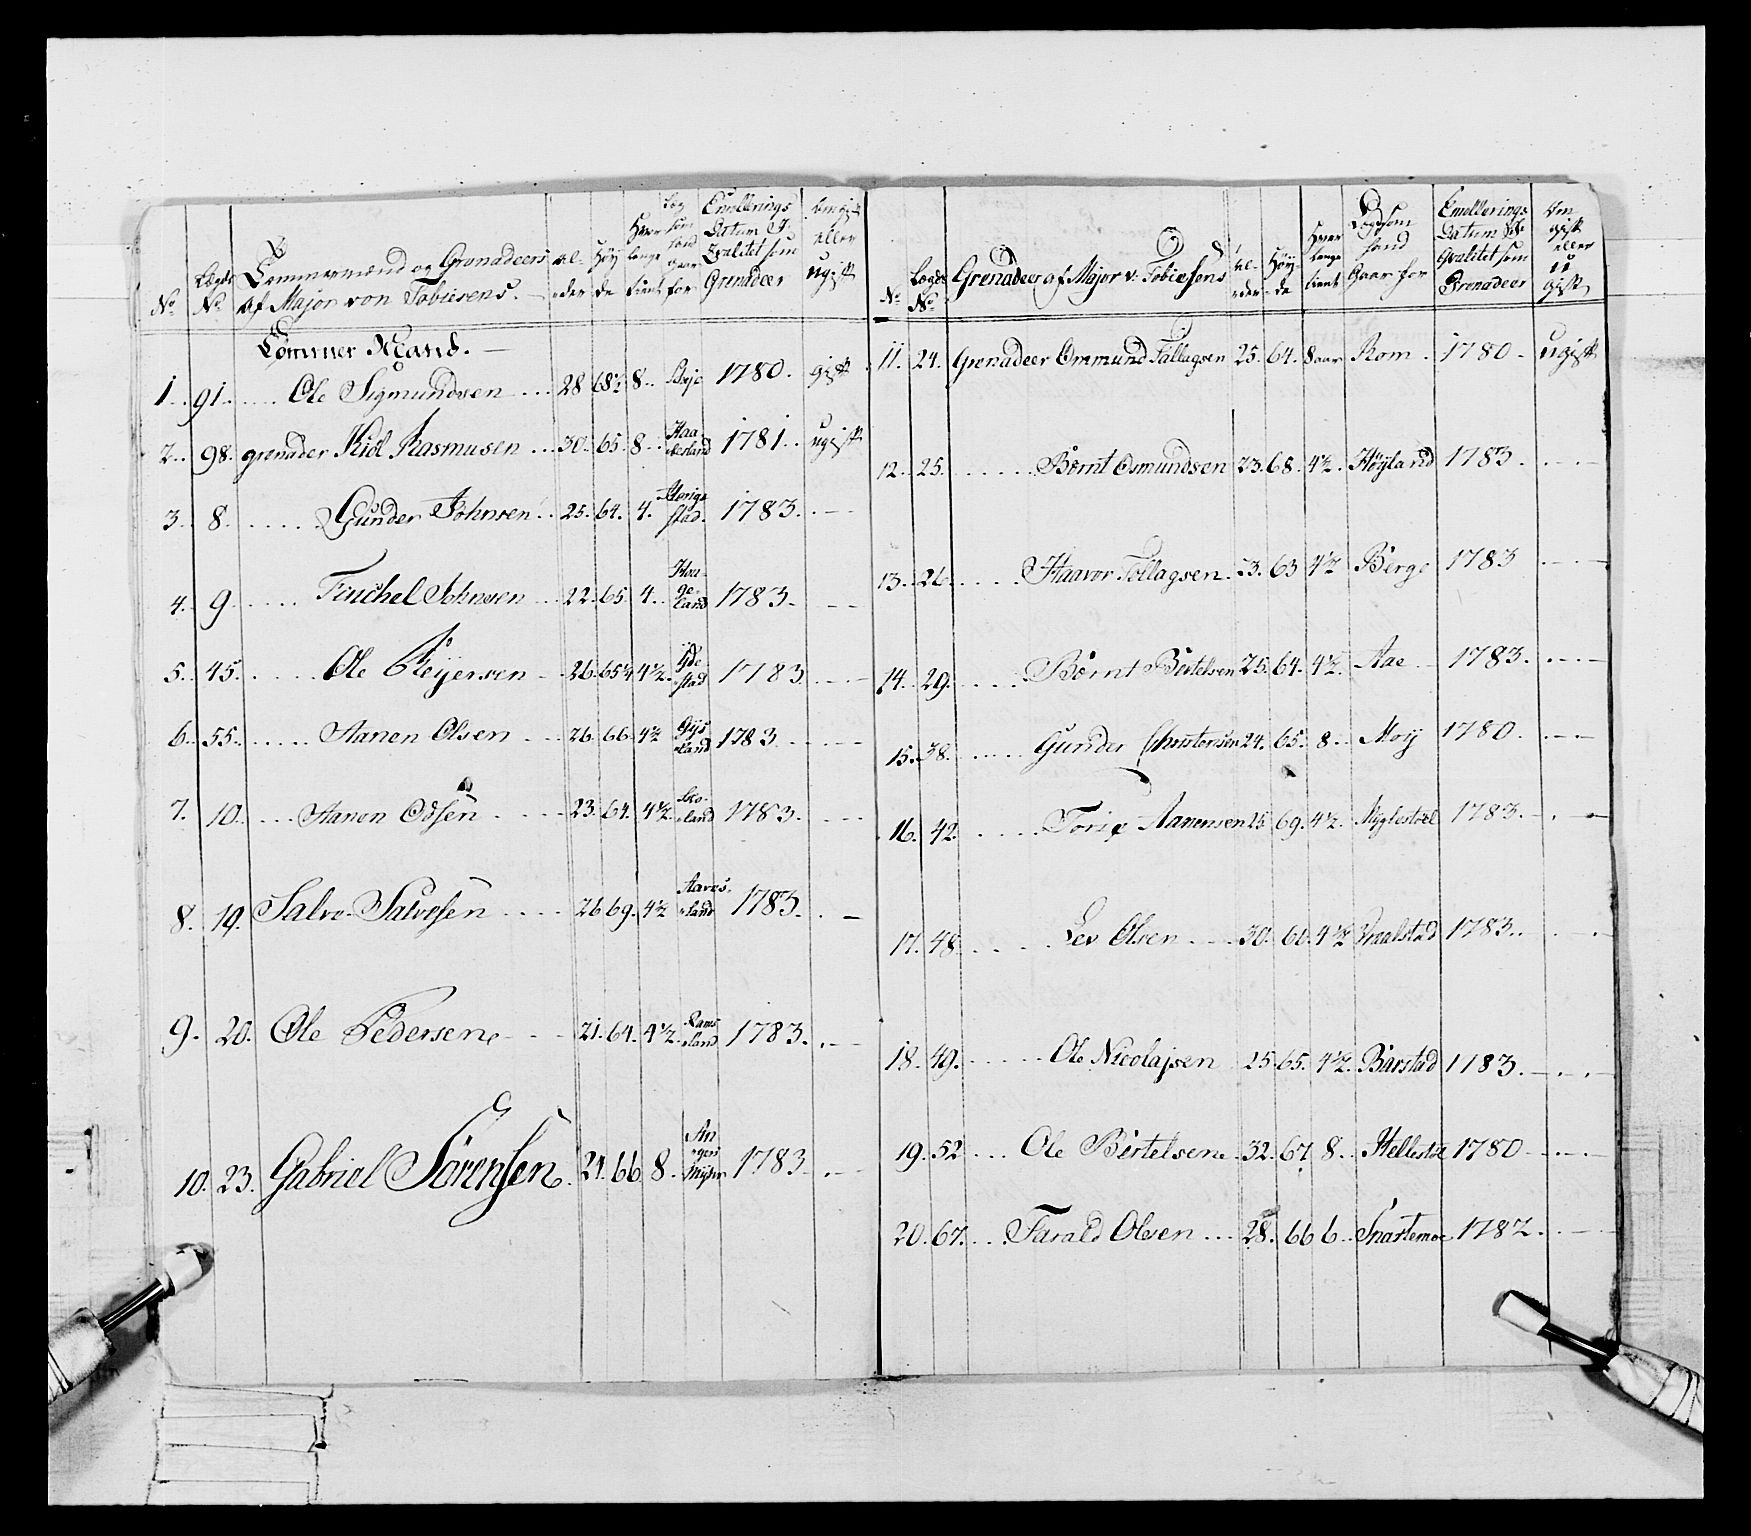 No.
Lægds No.
Tømmermænd og Grenadeers af Major von Tobiesens.
al-der
Høy-de
Hvor længe tient
Læg som ... Gaar for
Enrollerings Datum I Qvalitet som Grenadeer
Om gift eller ugift
Tømmer Mand.
1. 91. Ole Sigmundsen 28 68½ 8. 1780. gift
2. 98. grenader Kiel Rasmusen 30. 65. 8. Haa-land 1781. ugift
3. 8. Gunder Johnsen 25. 64. 4. 1783. —
4. 9. Johnsen 22. 65. 4. Haa-ge-land 1783. —
5. 45. Ole Reijersen 26. 65¼ 4½. stad 1783. —
6. 55. Aanen Olsen 26. 66. 4½ land 1783 —
7. 10. Aanen 23. 64. 4½. land 1783. —
8. 19. Salve Salvesen 26 69. 4½ land 1783. —
9. 20. Ole Pedersen 21. 64. 4½. land 1783. —
10. 23. Gabriel Sørensen 21. 66 8. 1783. —
No.
Lægds No.
Grenadeer af Major v. Tobiesens
al-der
Høy-de
Hvor længe tient
Læg som ... Gaar for
Enrollerings Datum I Qvalitet som Grenadeer
Om gift eller u gift
11. 24. Grenadeer Ommund Tallagsen 25. 64. 8 aar Rom. 1780. ugift
12. 25. Børnt Osmundsen 23. 68. 4½. Høyland 1783. —
13. 26. Haavor Tollagsen 23. 63 4½ Berge 1783 —
14. 29. Børnt Bertelsen 25. 64. 4½. Aae 1783. —
15. 38. Gunder Christensen 24. 65. 8. Moij 1780. —
16. 42. Aanensen 25 69. 4½. 1783. —
17. 48. Lev Olsen 30. 4½ 1783. —
18. 49. Ole Nicolajsen 25. 65. 4½. Barstad 1783. —
19. 52. Ole Bertelsen 32. 67. 8. 1780 —
20. 67. Tarald Olsen 28. 66 6. Snartemoe 1782. —